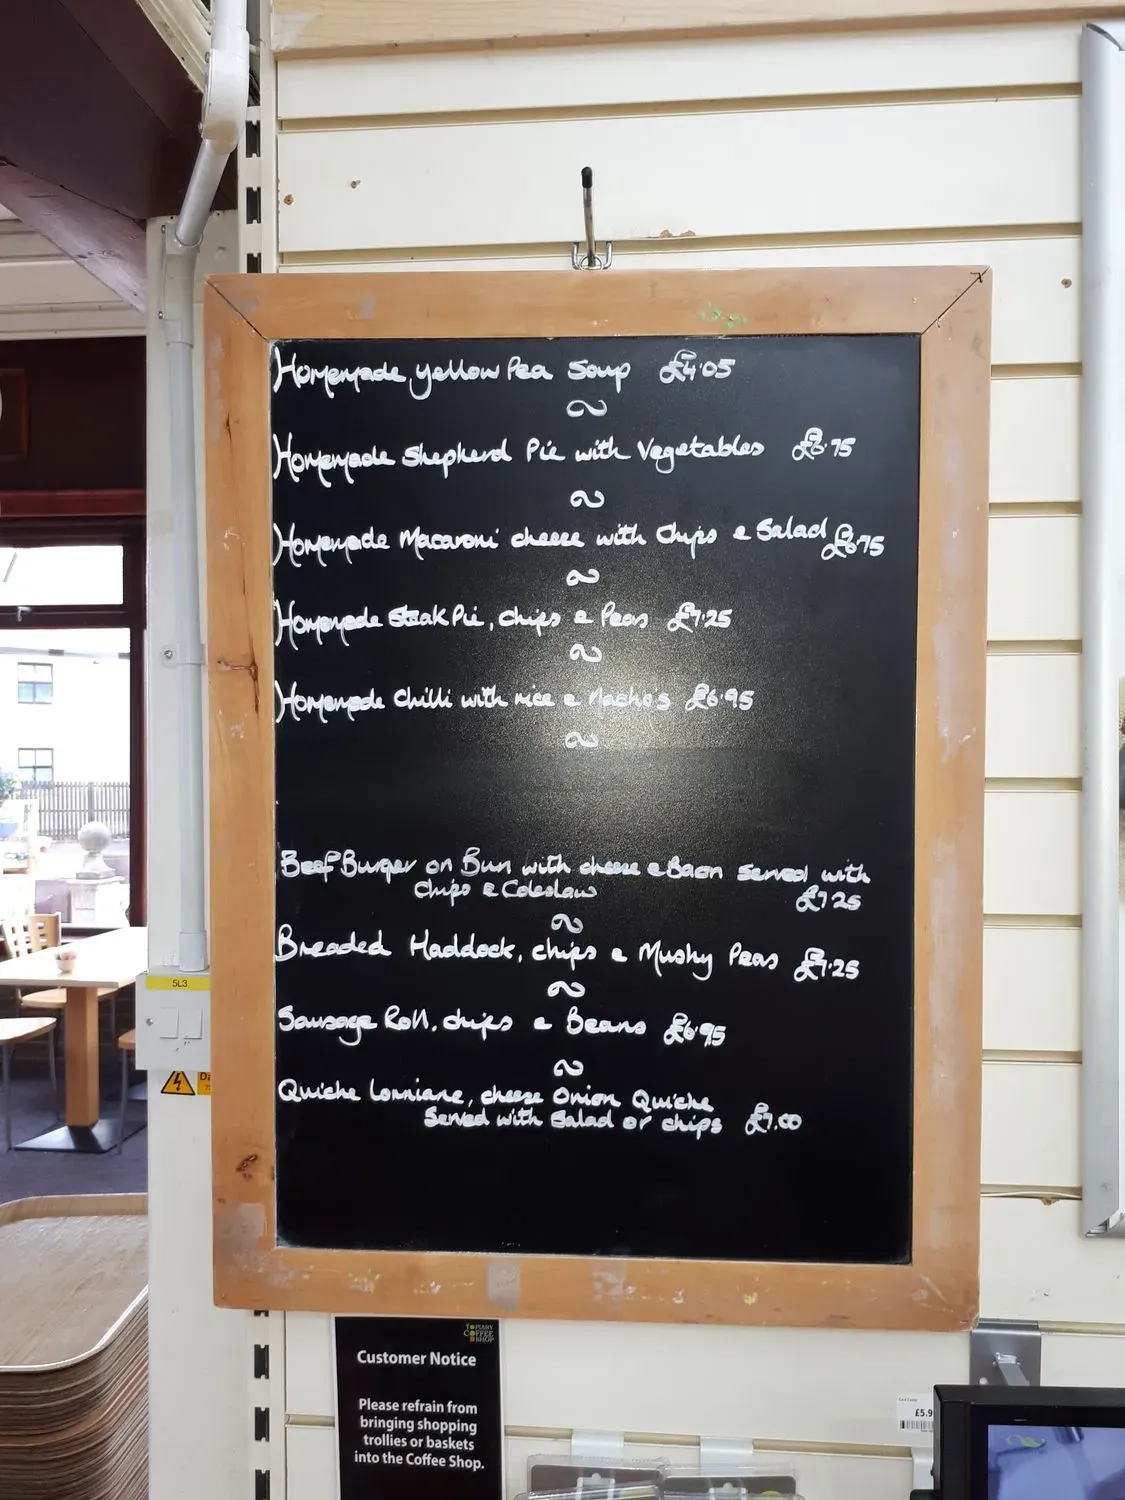 Homemade Yellow Pea Soup £4.05
Homemade Shepherd Pie with Vegetables £6.75
Homemade Macaroni cheese with Chips & Salad £6.75
Homemade Steak Pie, chips & Peas £7.25
Homemade Chilli with rice & Nachos £6.95
Beef Burger on Bun with cheese & Bacon Served with
chips & Coleslaw £7.25
Breaded Haddock, chips & Mushy Peas £7.25
Sausage Roll, chips & Beans £6.95
Quiche Lorriane, cheese Onion Quiche
Served with Salad or chips £7.00
5L3
TOPIARY
COFFEE
SHOP
Customer Notice
Please refrain from
bringing shopping
trollies or baskets
into the Coffee Shop.